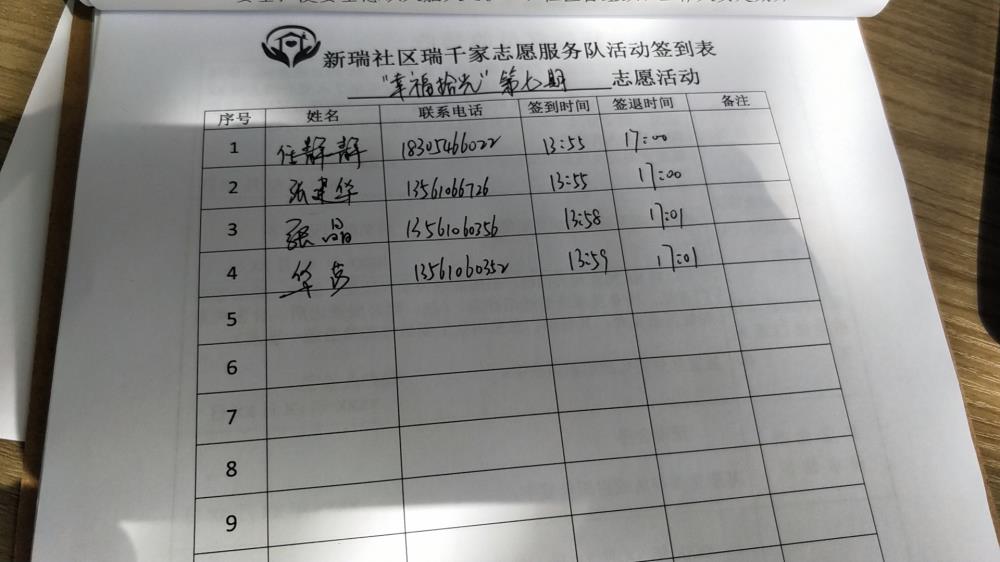 新瑞社区瑞千家志愿服务队活动签到表
“幸福拾光”第七期 志愿活动
序号 姓名 联系电话 签到时间 签退时间 备注
1 任静静 18305466022 13:55 17:00
2 张建华 13561066726 13:55 17:00
3 張晶 13561060356 13:58 17:01
4 华 13561060352 13:59 17:01
5
6
7
8
9